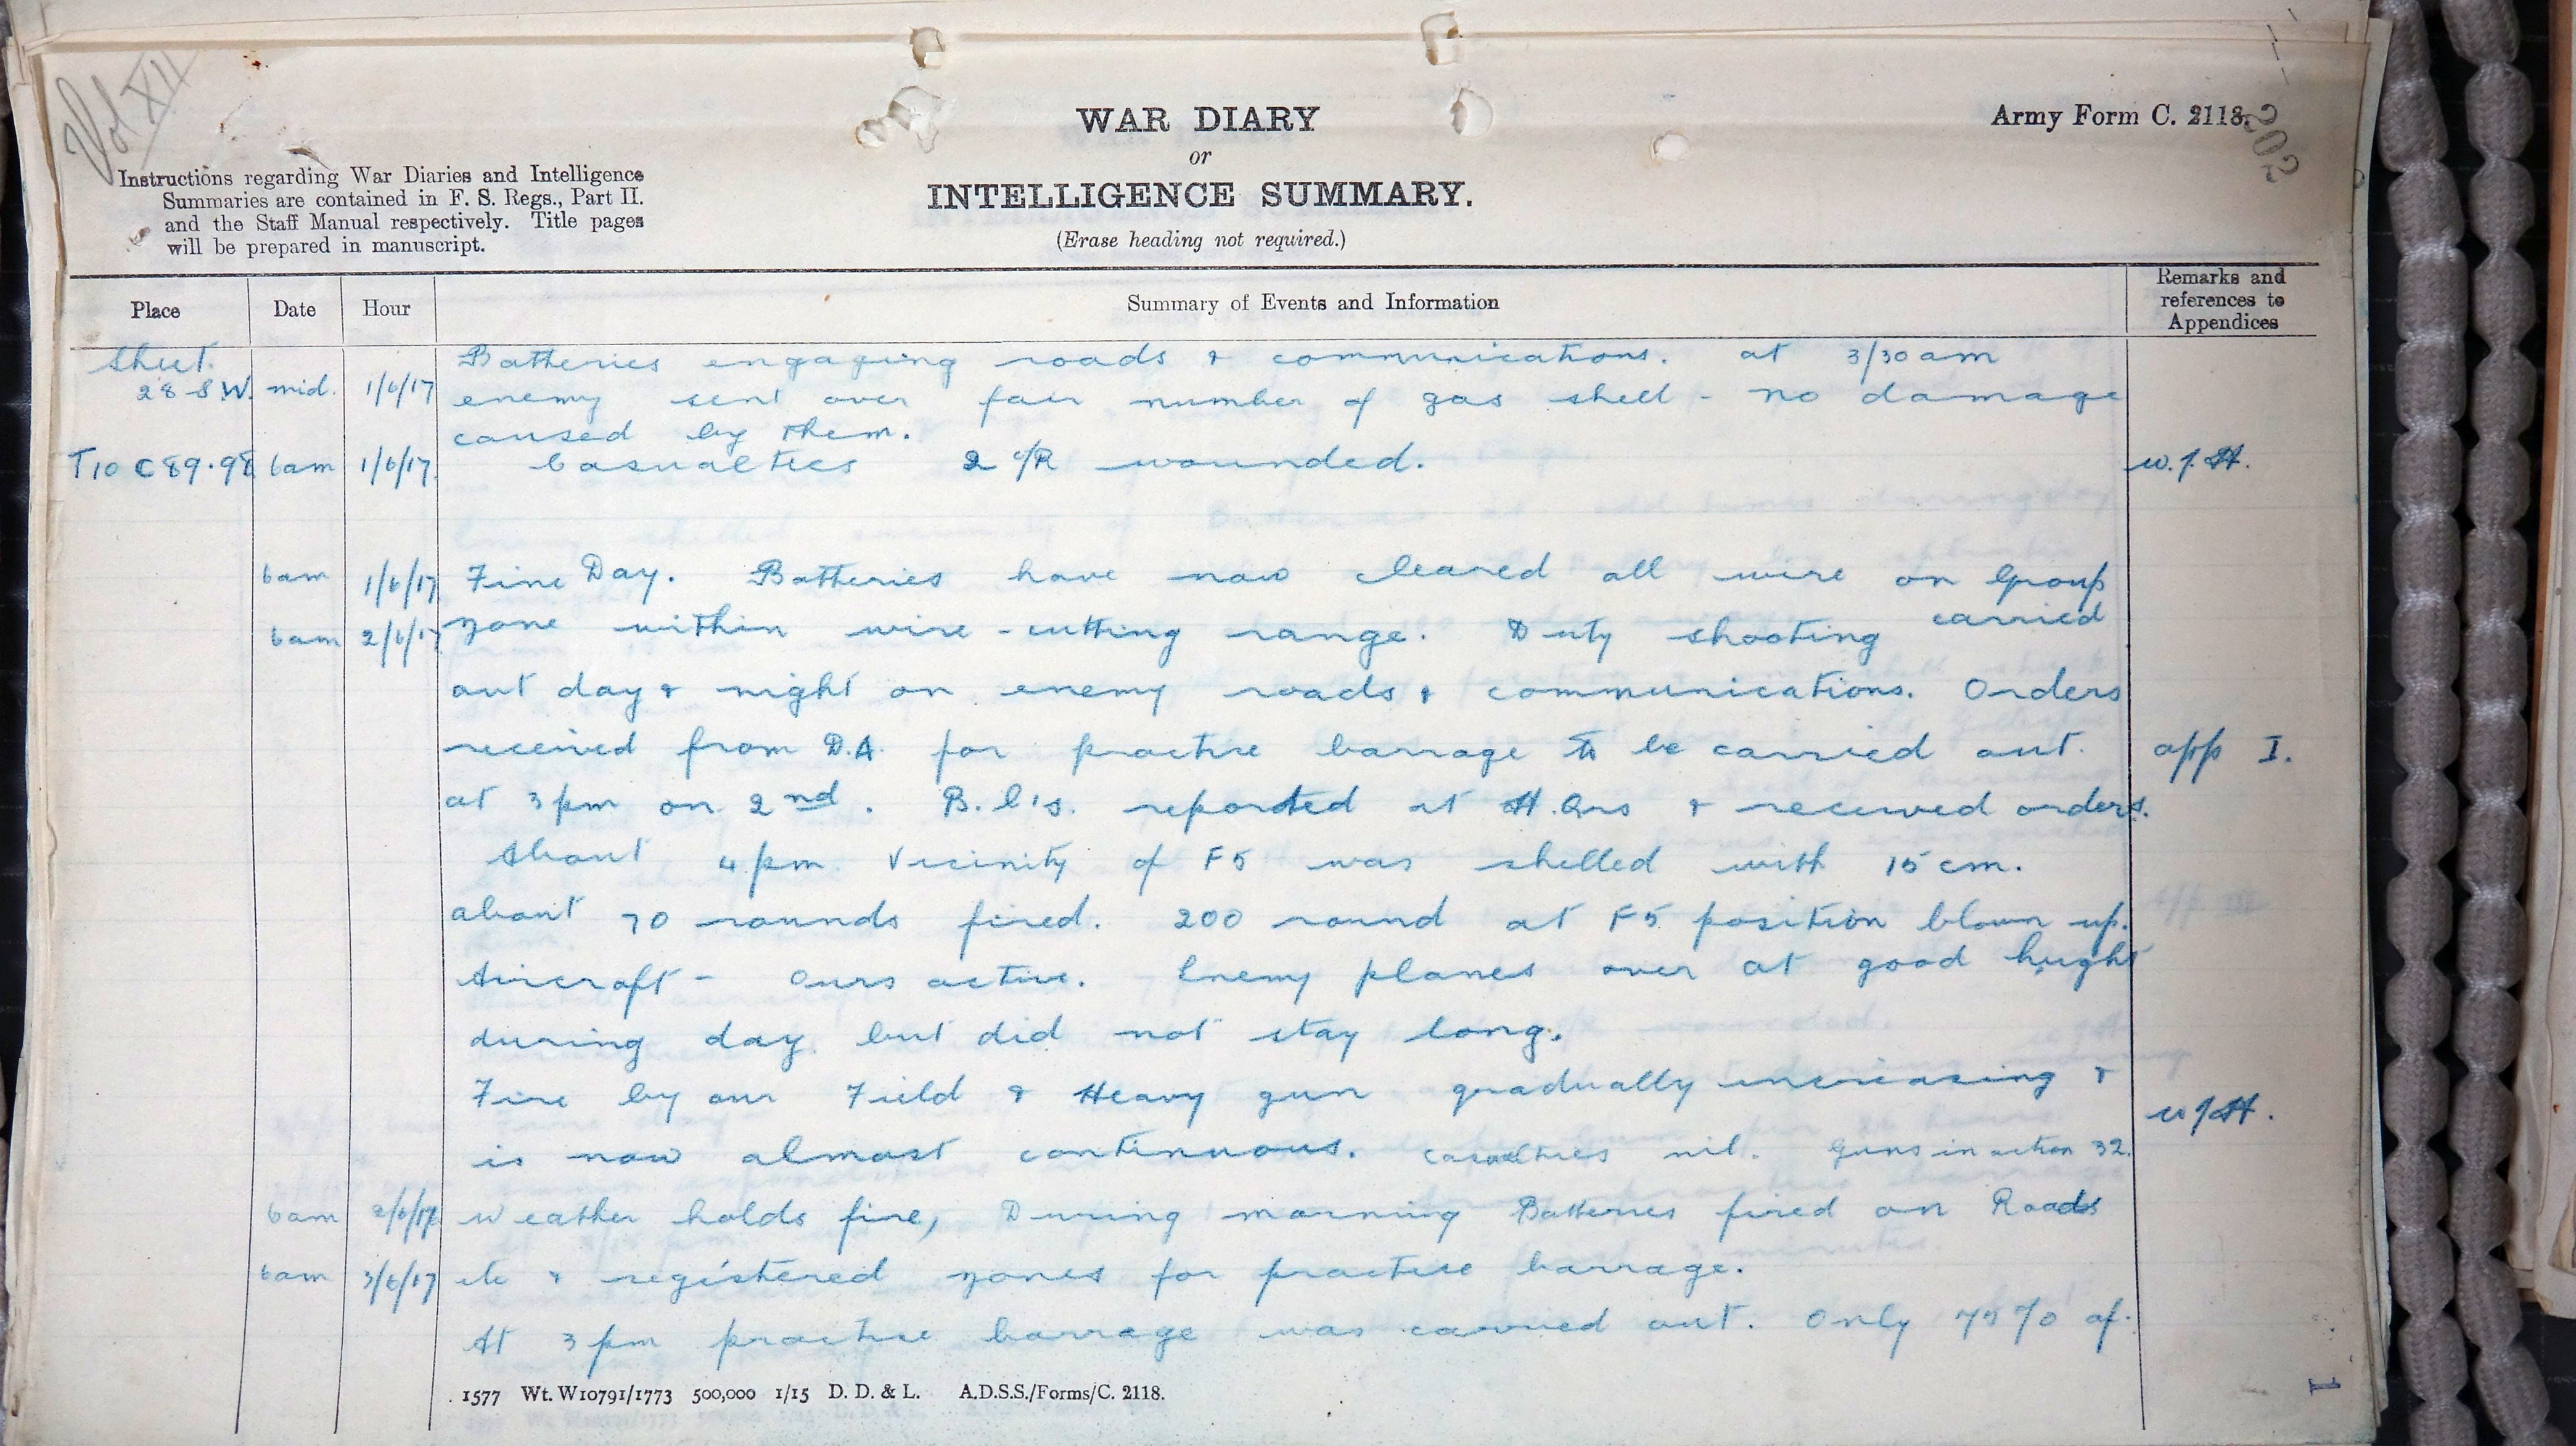 Vol XII
WAR DIARY
Army Form C. 2118.
202
or
INTELLIGENCE SUMMARY.
(Erase heading not required.)
Instructions regarding War Diaries and Intelligence
Summaries are contained in F. S. Regs., Part II.
and the Staff Manual respectively. Title pages
will be prepared in manuscript.
Place Date Hour Summary of Events and Information Remarks and references to Appendices
Sheet. Batteries engaging roads & communications. at 3/30 am
28 S.W. mid. 1/6/17 enemy sent over fair number of gas shell - no damage
caused by them.
T10 C89.98 6am 1/6/17. Casualties 2 O/R wounded. W.J.H.
6am 1/6/17 Fine Day. Batteries have now cleared all wire on Group
6am 2/6/17 zone within wire-cutting range. Duty shooting carried
out day & night on enemy roads & communications. Orders
received from D.A. for practise barrage to be carried out. app I.
at 3pm on 2nd. B.C's. reported at H.Qrs & received orders.
About 4 pm Vicinity of F5 was shelled with 15 cm.
about 70 rounds fired. 200 round at F5 position blown up.
Aircraft - Ours active. Enemy planes over at good hught
during day but did not stay long.
Fire by our Field & Heavy gun gradually increasing &
is now almost continuous. Casualties nil. Guns in action 32. W.J.H.
6am 2/6/17 Weather holds fine, During morning Batteries fired on Roads
6am 3/6/17 etc & registered zones for practise barrage.
At 3 pm practise barrage was carried out. Only 75% of
1577 Wt. W10791/1773 500,000 1/15 D. D. & L. A.D.S.S./Forms/C. 2118.
1